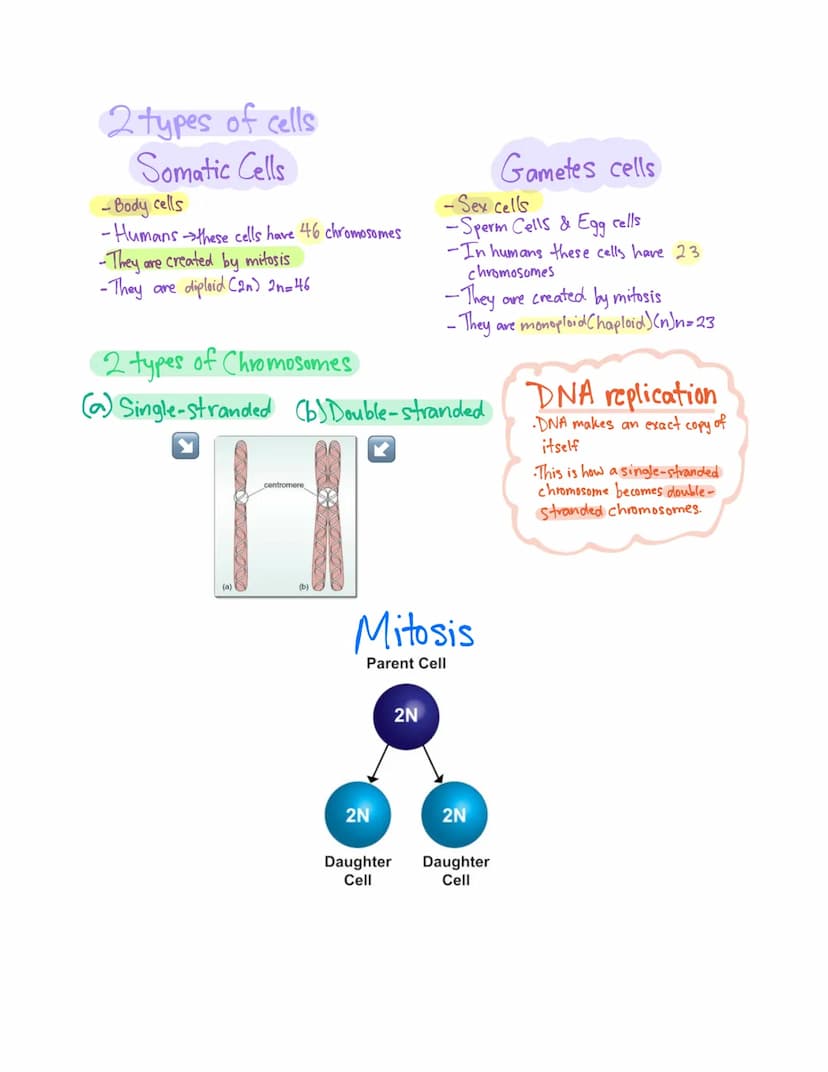 2 types of cells
Somatic Cells
- Body cells
- Humans → these cells have 46 chromosomes
- They are created by mitosis
- They are diploid (2n) 2n=46
Gametes cells
- Sex cells
- Sperm Cells & Egg cells
- In humans these cells have 23
chromosomes
- They are created by mitosis
- They are monoploid (haploid) (n) n=23
2 types of Chromosomes
(a) Single-stranded (b) Double-stranded
centromere
(a) (b)
DNA replication
·DNA makes an exact copy of
itself
·This is how a single-stranded
chromosome becomes double-
stranded chromosomes.
Mitosis
Parent Cell
2N
2N 2N
Daughter Daughter
Cell Cell